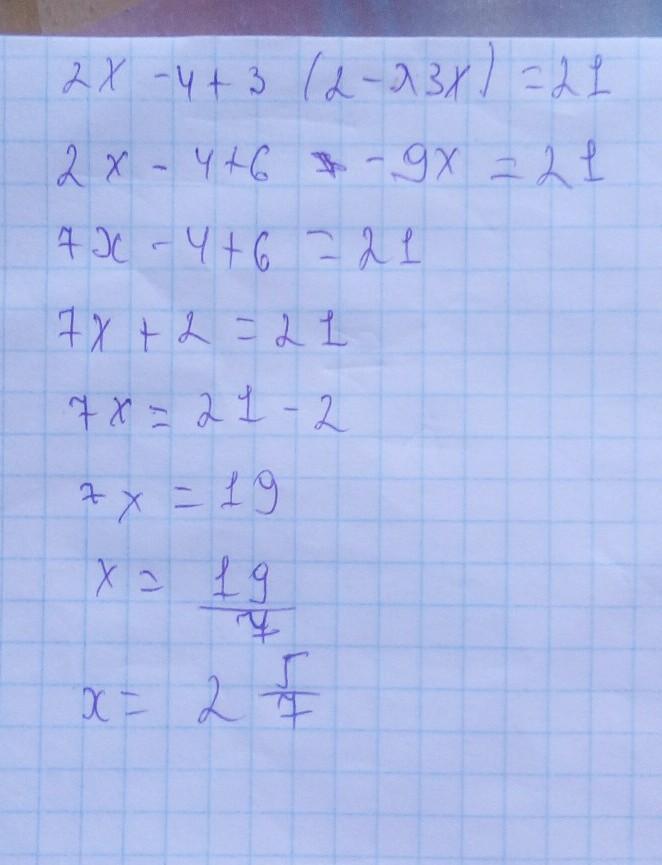 2x - 4 + 3 (2 - 3x) = 21
2x - 4 + 6 - 9x = 21
7x - 4 + 6 = 21
7x + 2 = 21
7x = 21 - 2
7x = 19
x = 19/7
x = 2 5/7